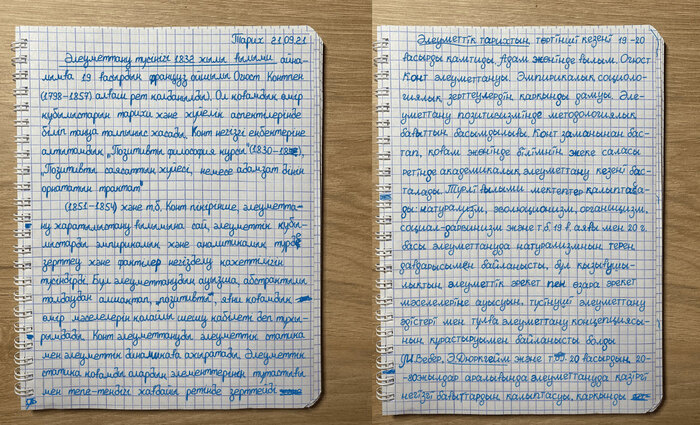 Тарих 21.09.21
Әлеуметтану түсінігі 1832 жылы ғылыми айна-
лымға 19 ғасырдың француз ойшылы Огюст Контпен
(1798-1857) алғаш рет қолданылды. Ол қоғамдық өмір
құбылыстарын тарихи және жүйелі аспектілерінде
біліп тануға талпыныс жасады. Конт негізгі еңбектеріне
алтытомдық „Позитивті философия курсы" (1830-
„Позитивті саясаттың жүйесі, немесе адамзат дінін
орнататын трактат"
(1851-1854) және т.б. Конт пікірінше, әлеуметта-
ну жаратылыстану ғылымына сай, әлеуметтік құбы-
лыстарды эмпирикалық және аналитикалық түрде
зерттеу және фактілер негіздеу қажеттілігін
түсіндірді. Бұл әлеуметтанудың ауызша, абстрактілі
талдаудан алшақтап, „позитивті", яғни қоғамдық
өмір мәселелерін қалайша шешу қабілеті деп тұжы-
рымдады. Конт әлеуметтануды әлеуметтік статика
мен әлеуметтік динамикаға ажыратады. Әлеуметтік
статика қоғамды олардың элементтерінің тұтастығы
мен тепе-теңдігі жағдайы ретінде зерттейді
Әлеуметтік тарихтың төртінші кезеңі 19-20
ғасырды қамтиды. Адам жөнінде ғылым. Огюст
Конт әлеуметтануы. Эмпирикалық социоло-
гиялық зерттеулердің қарқынды дамуы. Әле-
уметтану позитивизмінде методологиялық
бағыттың басымдылығы. Конт заманынан бас-
тап, қоғам жөнінде білімнің жеке саласы
ретінде академиялық әлеуметтану кезеңі бас-
талады. Түрлі ғылыми мектептер қалыптаса-
ды: натурализм, эволюционизм, органицизм,
социал-дарвинизм және т.б 19 ғ. аяғы мен 20 ғ.
басы әлеуметтануда натурализмның терең
дағдарысымен байланысты, бұл қызығушы-
лықтың әлеуметтік әрекет пен өзара әрекет
мәселелеріне ауысуын, түсінуші әлеуметтану
әдістері мен тұлға әлеуметтану концепциясы-
ның құрастыруымен байланысты болды
/М.Вебер, Э.Дюркгейм және т.б/. 20 ғасырдың 20-
-жылдар аралығында әлеуметтануда қазіргі
негізгі бағыттардың қалыптасуы, қарқынды